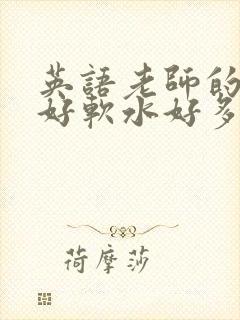 英語老師的
好軟水好多
荷摩莎